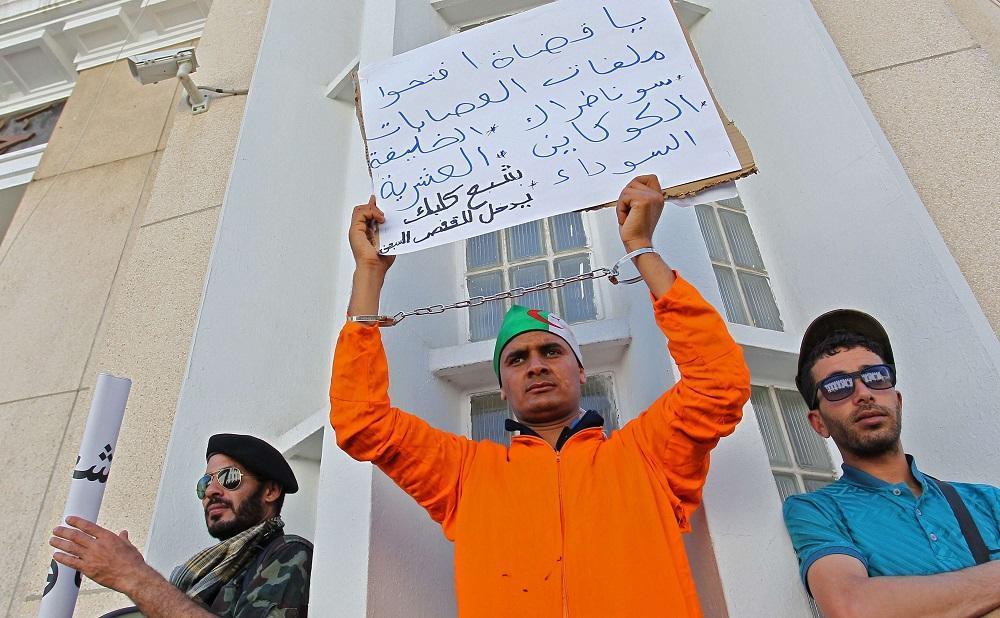 يا قضاة افتحوا
ملفات العصابات
سوناطراك * الخليفة
* الكوكايين * العشرية
السوداء
* شبع كلبك
يدخل للقفص